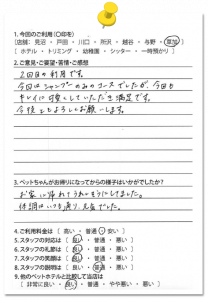 1. 今回のご利用（〇印を）
［店舗： 見沼 ・ 戸田 ・ 川口 ・ 所沢 ・ 越谷 ・ 与野 ・ 草加］
［ ホテル ・ トリミング ・ 幼稚園 ・ シッター ・ 一時預かり ］
2. ご意見・ご要望・苦情・ご感想
2回目の利用です。
今回はシャンプーのみのコースでしたが、今回も
キレイに可愛くしていただき満足です。
今後ともよろしくお願いします。
3. ペットちゃんがお帰りになってからの様子はいかがでしたか？
お家に帰れてうれしそうにしてました。
体調はいつも通り元気でした。
4. ご利用料金は ［ 高い ・ 普通 ・ 安い ］
5. スタッフの対応は ［ 良い ・ 普通 ・ 悪い ］
6. スタッフの礼節は ［ 良い ・ 普通 ・ 悪い ］
7. スタッフの笑顔は ［ 良い ・ 普通 ・ 悪い ］
8. スタッフの説明は ［ 良い ・ 普通 ・ 悪い ］
9. 他のペットホテルと比較して当店は
［ 非常に良い ・ 良い ・ 普通 ・ やや悪い ・ 悪い ］